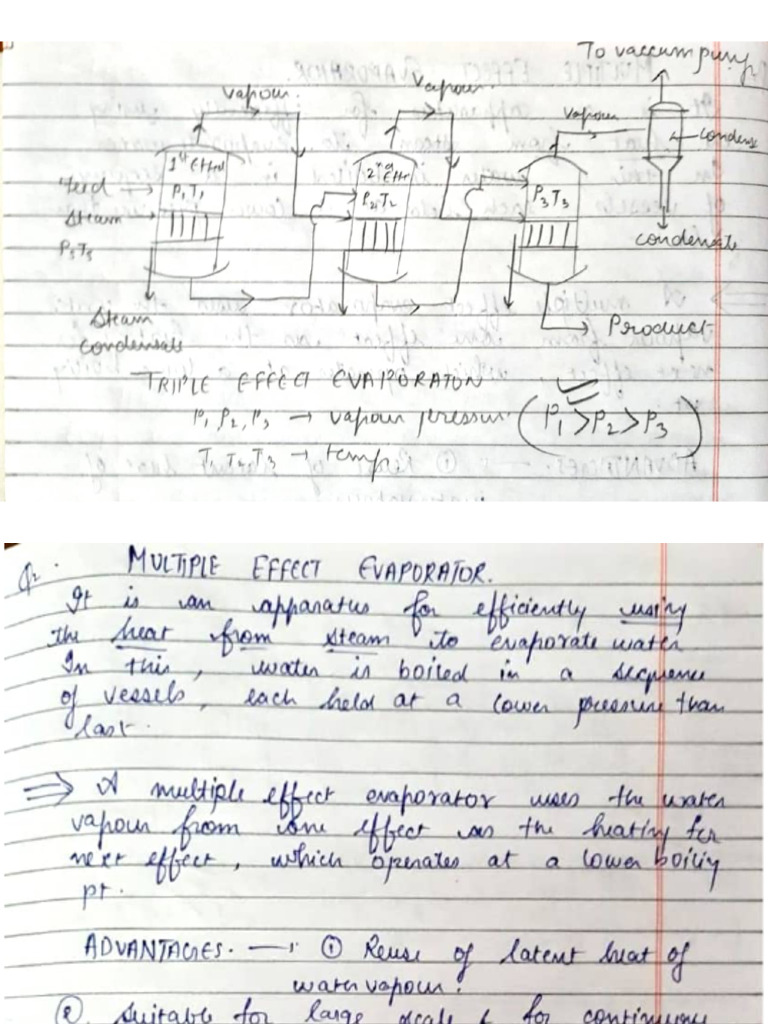 To vaccum pump
vapour
vapour
vapour
condense
1st Effect
P1 T1
2nd Effe
P2, T2
P3 T3
Feed
Steam
Ps Ts
condensate
Steam
condensate
Product
TRIPLE EFFECT EVAPORATON
P1, P2, P3 → vapour pressure (P1 > P2 > P3)
T1 T2 T3 → temp
Q2. MULTIPLE EFFECT EVAPORATOR.
It is an apparatus for efficiently using
the heat from steam to evaporate water
In this, water is boiled in a sequence
of vessels, each held at a lower pressure than
last.
⇒ A multiple effect evaporator uses the water
vapour from one effect as the heating for
next effect, which operates at a lower boiling
pt.
ADVANTAGES. —: ① Reuse of latent heat of
water vapour.
② suitable for large scale & for continuous